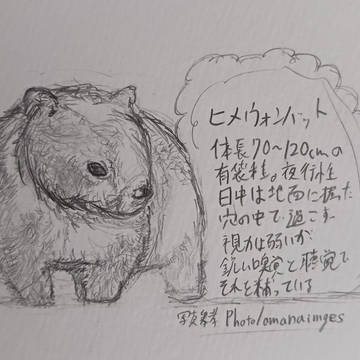 ヒメウォンバット
体長70〜120cmの
有袋類。夜行性
日中は地面に掘った
穴の中で過ごす
視力は弱いが
鋭い嗅覚と聴覚で
それを補っている
写真参考 Photo/omanaimges